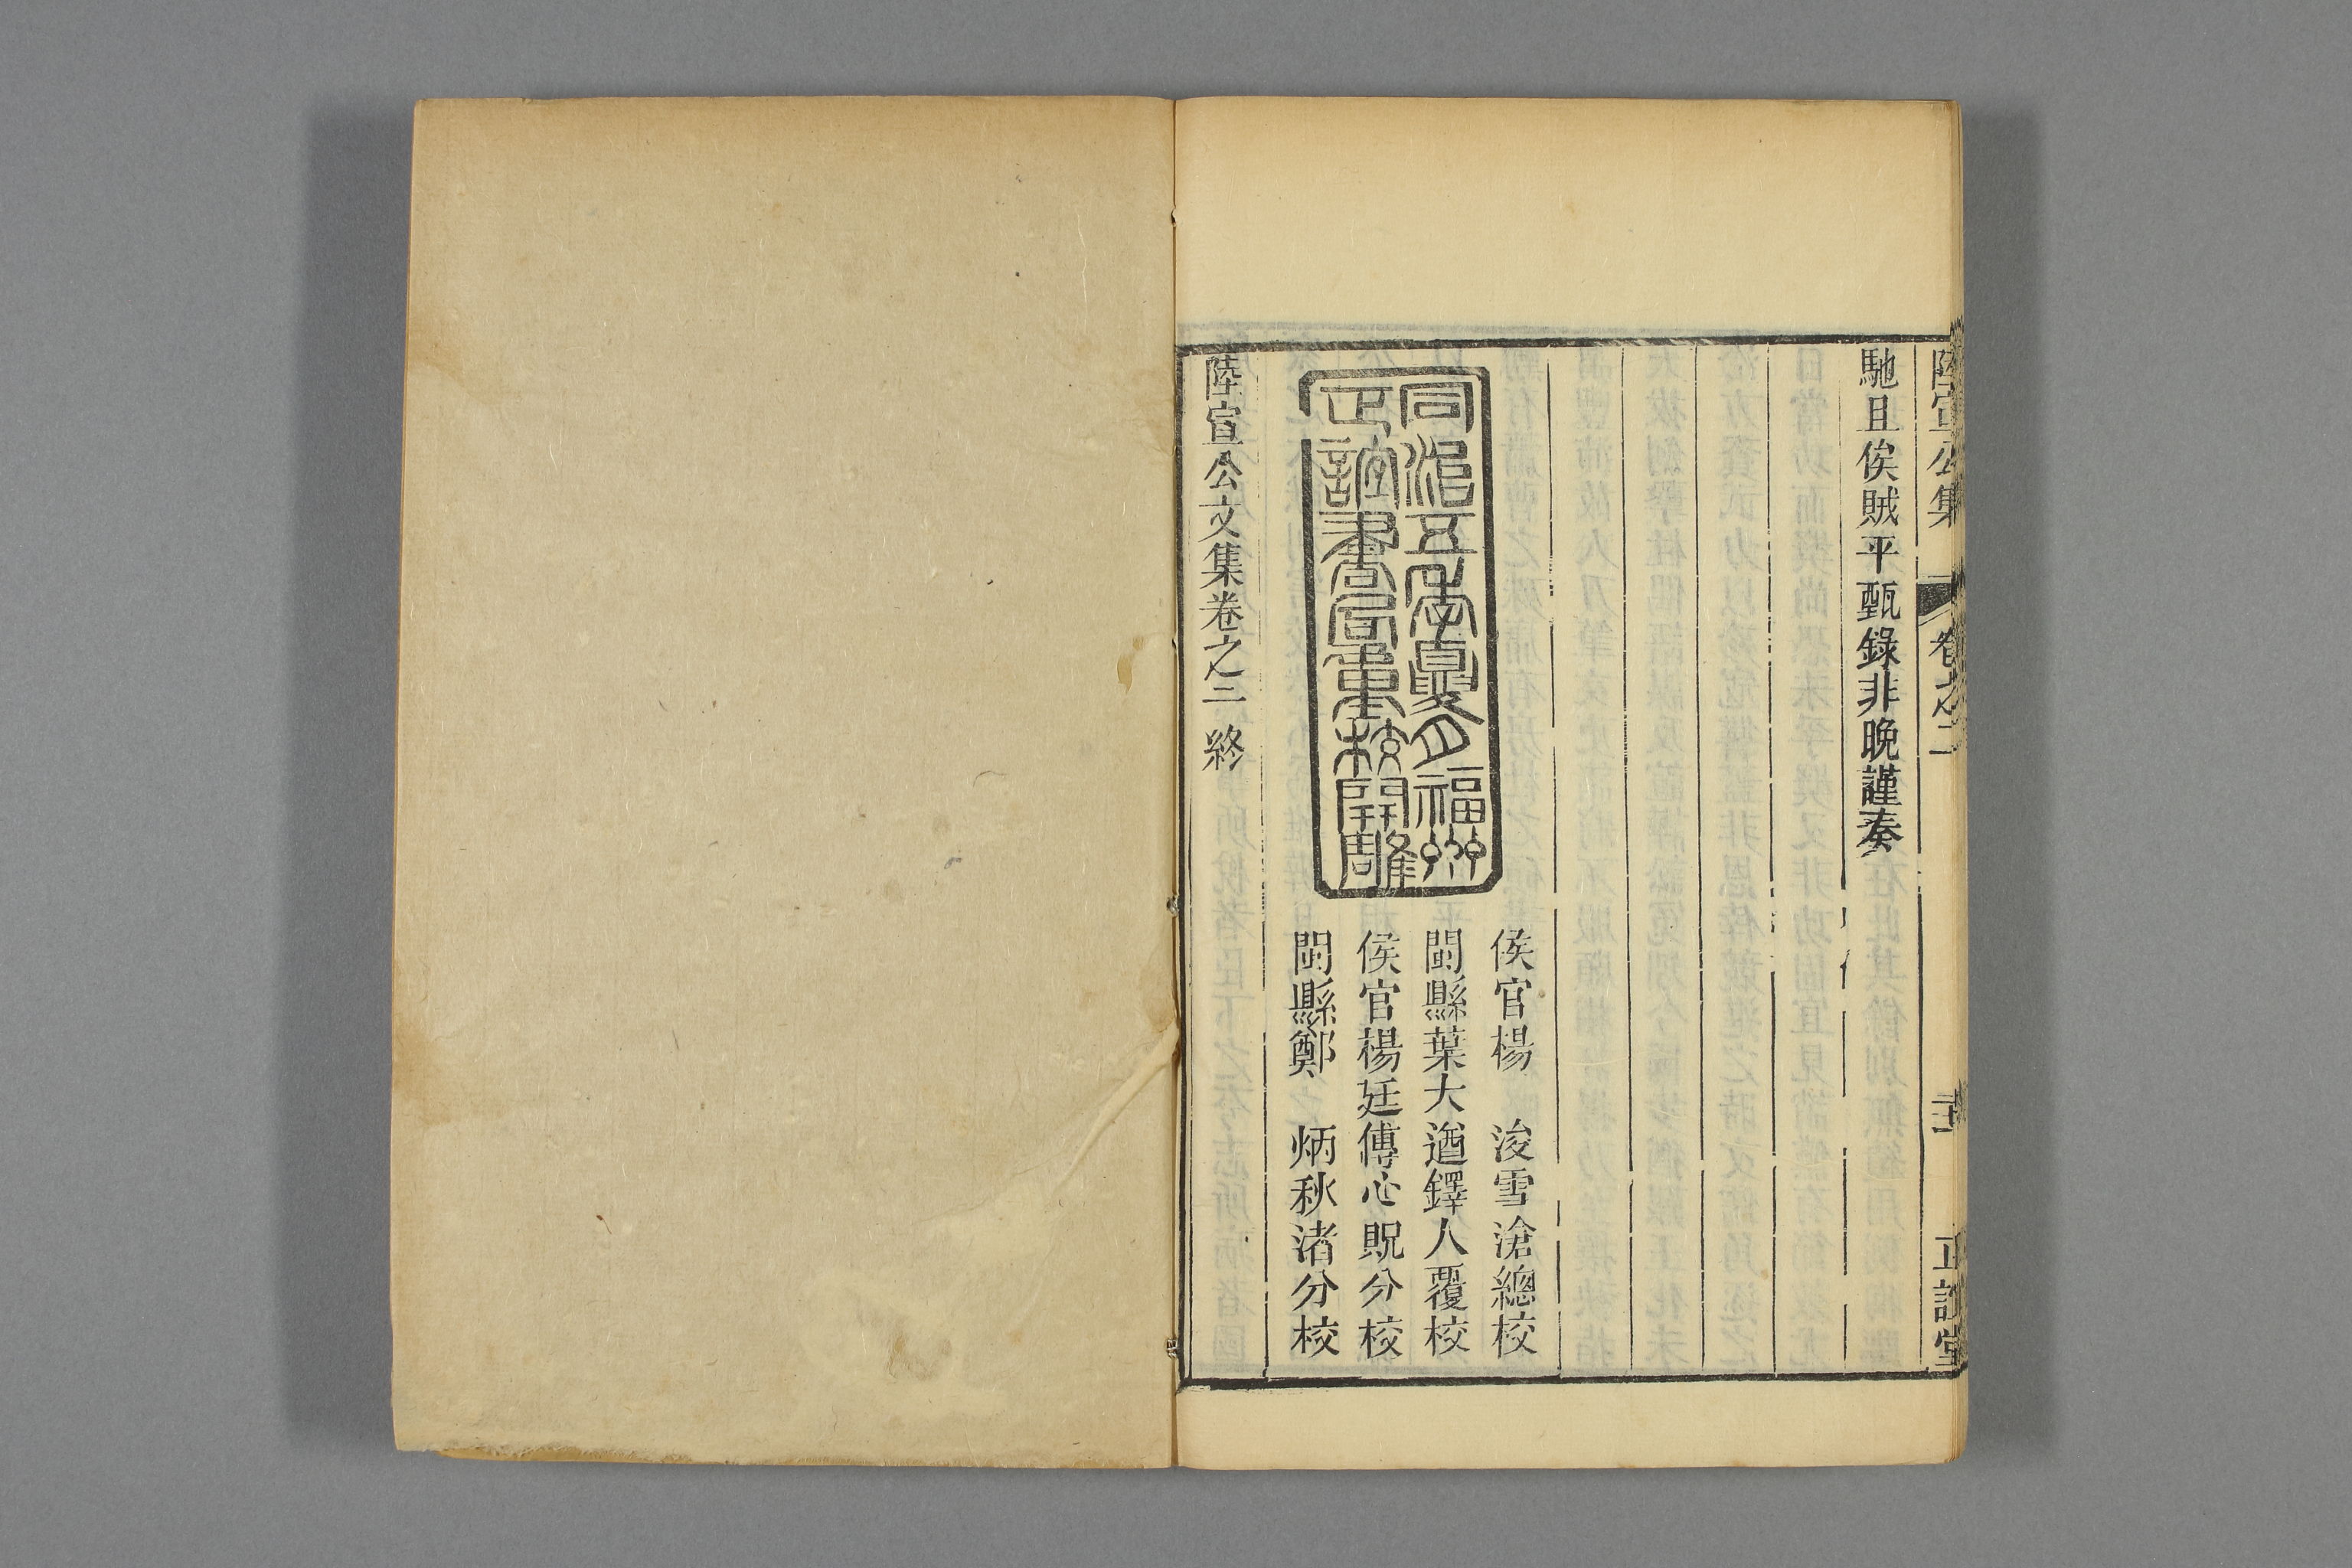 陸宣公集　卷之二　正誼堂
馳且俟賊平甄錄非晚謹奏
同治五年夏月福州
正誼書局重校開雕
侯官楊　浚雪滄總校
閩縣葉大遒鐸人覆校
侯官楊廷傳心貺分校
閩縣鄭　炳秋渚分校
陸宣公文集卷之二終